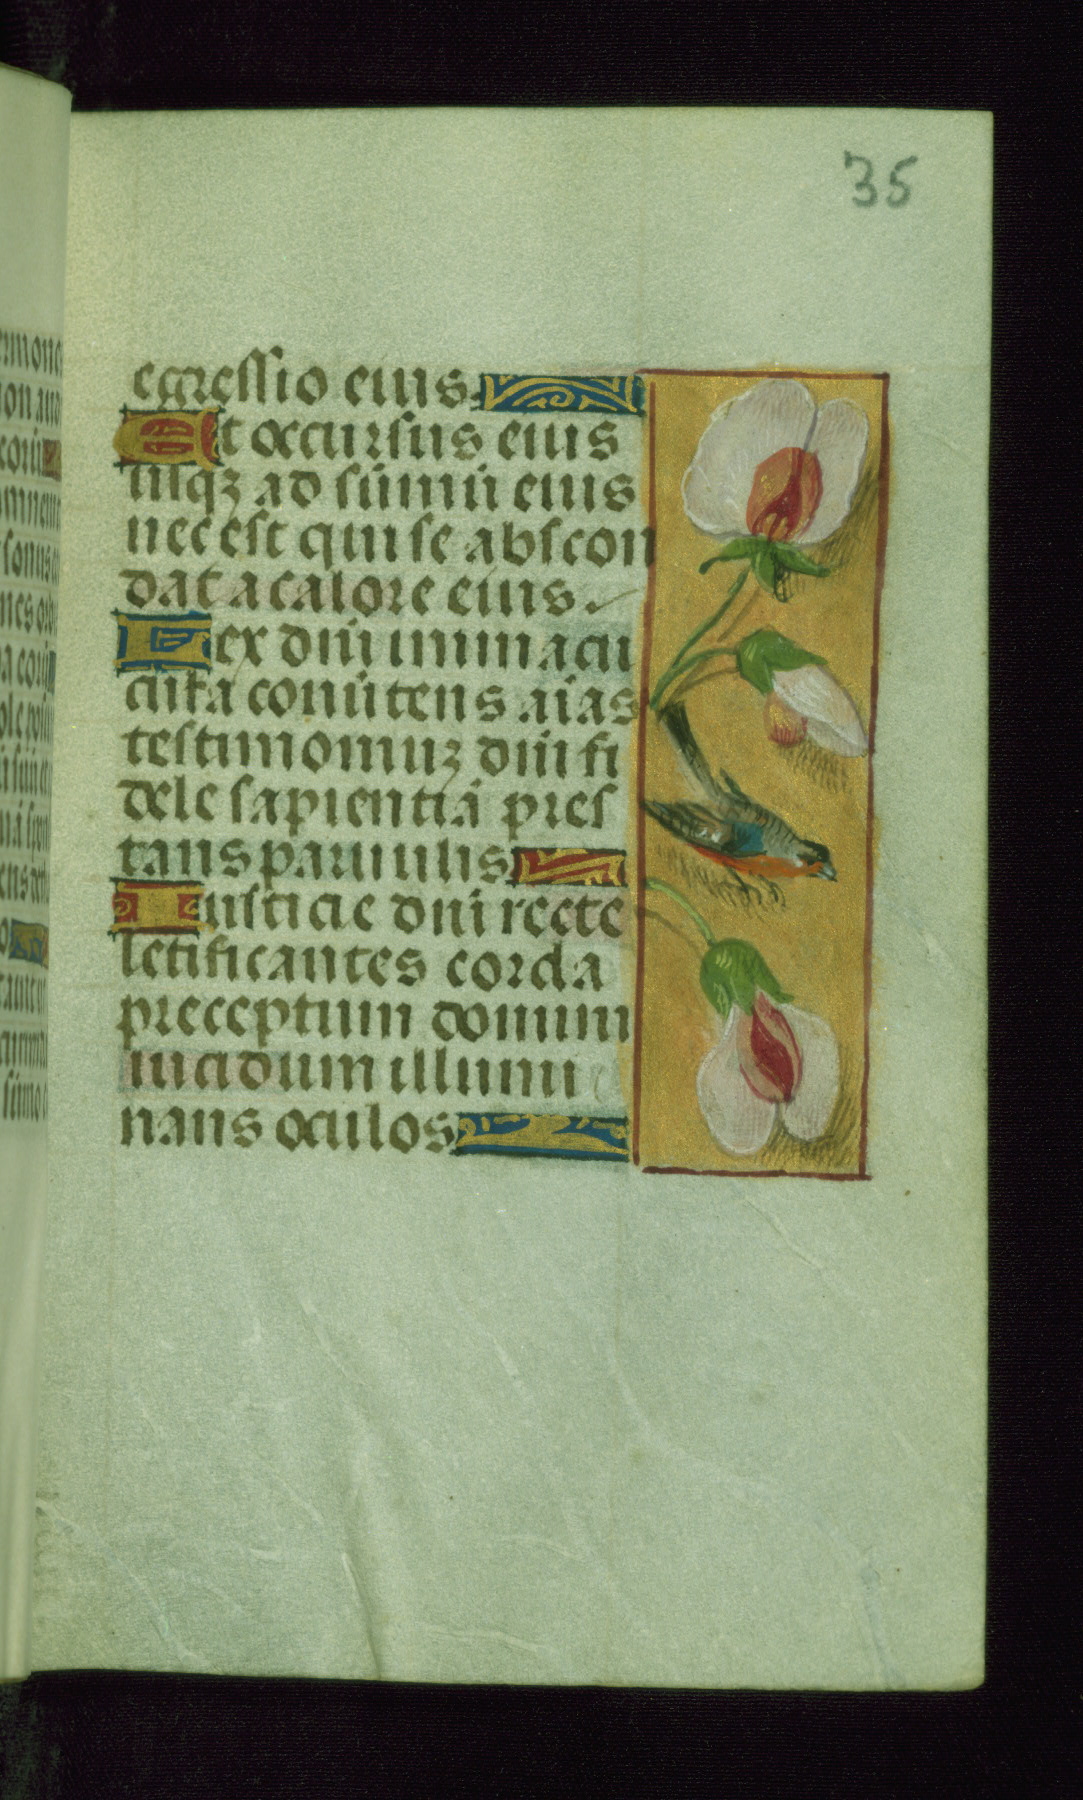 35
egressio eius
Et occursus eius
usqꝫ ad sūmū eius
nec est qui se abscon
dat a calore eius
Lex dn̄i inmacu
culata conūtens aīas
testimoniuꝫ dn̄i fi
dele sapientiā pres
tans paruulis
Iusticie dn̄i recte
letificantes corda
preceptum domini
lucidum illumi
nans oculos